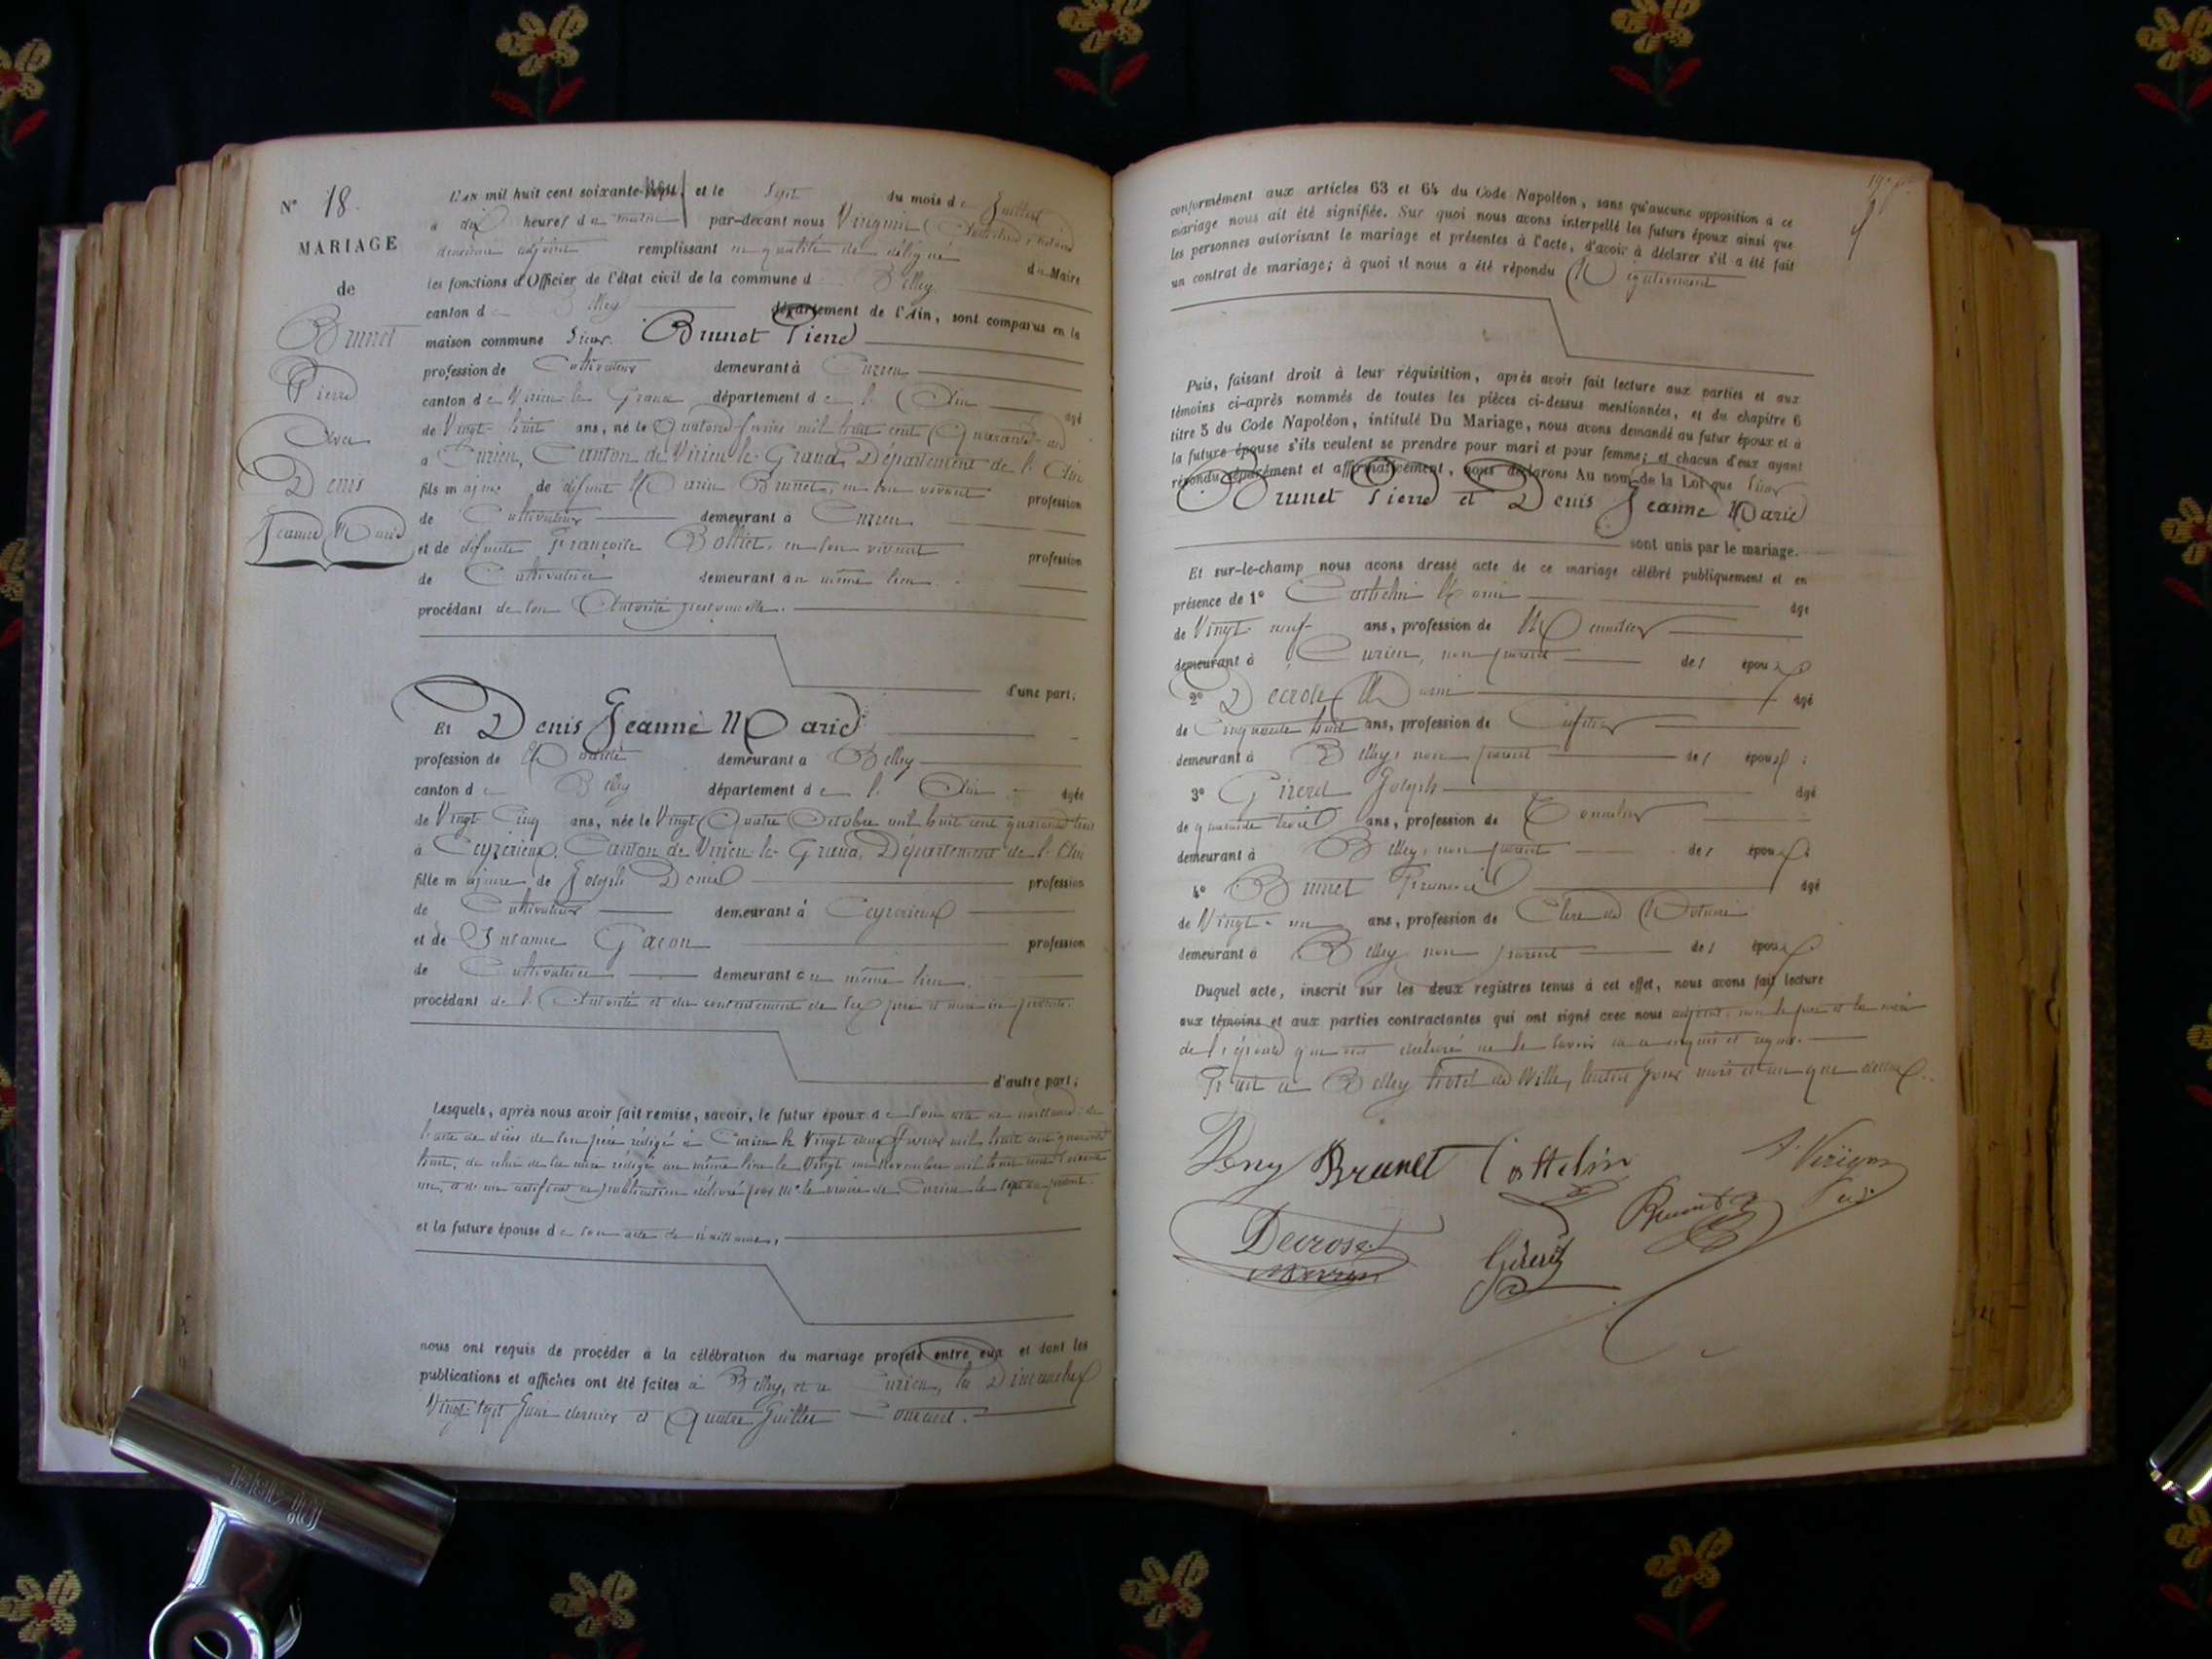 N° 18.
MARIAGE
de
Brunet
Pierre
Avec
Denis
Jeanne Marie
L'an mil huit cent soixante- et le Sept du mois de Juillet
à dix heures du matin par-devant nous
deuxième adjoint remplissant en qualité de délégué du Maire
les fonctions d'Officier de l'état civil de la commune d Belley
canton de Belley département de l'Ain, sont comparus en la
maison commune Sieur Brunet Pierre
profession de Cultivateur demeurant à Curien
canton de Virieu le Grand département de l'Ain âgé
de Vingt huit ans, né le Quatorze février mil huit cent Quarante un
à Curien, Canton de Virieu le Grand, Département de l'Ain
fils majeur de défunt Marin Brunet, en son vivant profession
de Cultivateur demeurant à Curien
et de défunte Françoise Bolliet, en son vivant profession
de Cultivatrice demeurant au même lieu.
procédant de son Autorité personnelle.
d'une part;
Et Denis Jeanne Marie
profession de demeurant à Belley
canton de Belley département de l'Ain âgée
de Vingt Cinq ans, née le Vingt Quatre Octobre mil huit cent quarante trois
à Ceyzérieux, Canton de Virieu le Grand, Département de l'Ain
fille majeure de Joseph Denis profession
de Cultivateur demeurant à Ceyzérieux
et de Suzanne Gacon profession
de Cultivatrice demeurant au même lieu.
procédant de l'Autorité et du consentement de ses père et mère ici présents.
d'autre part;
Lesquels, après nous avoir fait remise, savoir, le futur époux de son acte de naissance, de
l'acte de décès de son père rédigé à Curien le Vingt deux Février mil huit cent quarante
huit, de celui de sa mère rédigé au même lieu le Vingt un Novembre mil huit cent soixante
un, et de un certificat de publication délivré par Mr le maire de Curien le sept du présent.
et la future épouse de son acte de naissance,
nous ont requis de procéder à la célébration du mariage projeté entre eux et dont les
publications et affiches ont été faites à Belley, et à Curien, les Dimanches
Vingt sept Juin dernier et Quatre Juillet Courant.
conformément aux articles 63 et 64 du Code Napoléon, sans qu'aucune opposition à ce
mariage nous ait été signifiée. Sur quoi nous avons interpellé les futurs époux ainsi que
les personnes autorisant le mariage et présentes à l'acte, d'avoir à déclarer s'il a été fait
un contrat de mariage; à quoi il nous a été répondu Négativement
Puis, faisant droit à leur réquisition, après avoir fait lecture aux parties et aux
témoins ci-après nommés de toutes les pièces ci-dessus mentionnées, et du chapitre 6
titre 5 du Code Napoléon, intitulé Du Mariage, nous avons demandé au futur époux et à
la future épouse s'ils veulent se prendre pour mari et pour femme; et chacun d'eux ayant
répondu séparément et affirmativement, nous déclarons Au nom de la Loi que Sieur
Brunet Pierre et Denis Jeanne Marie
sont unis par le mariage.
Et sur-le-champ nous avons dressé acte de ce mariage célébré publiquement et en
présence de 1° Costelin âgé
de Vingt neuf ans, profession de Menuisier
demeurant à Curien, non parent des époux
2° Decroset âgé
de Cinquante huit ans, profession de Cafetier
demeurant à Belley, non parent des époux;
3° Girerd Joseph âgé
de quarante trois ans, profession de Tonnelier
demeurant à Belley, non parent des époux;
4° Brunet François âgé
de Vingt-un ans, profession de Clerc de Notaire
demeurant à Belley non parent des époux
Duquel acte, inscrit sur les deux registres tenus à cet effet, nous avons fait lecture
aux témoins et aux parties contractantes qui ont signé avec nous adjoint, non le père et la mère
de l'épouse qui ont déclaré ne le savoir de ce enquis et requis.
Fait à Belley hôtel de Ville, lesdits jour mois et an que dessus.
Deny Brunet Costelin
Decroset
Girerd
Brunet